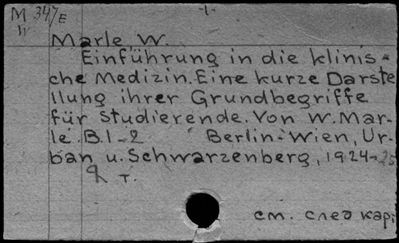 -1-
M 347/E
Marle W.
Einführung in die klinis-
che Medizin. Eine kurze Darste
llung ihrer Grundbegriffe
für Studierende. Von W. Mar-
le. B. 1-2 Berlin-Wien, Ur-
ban u. Schwarzenberg, 1924-25
2 т.
см. след карт